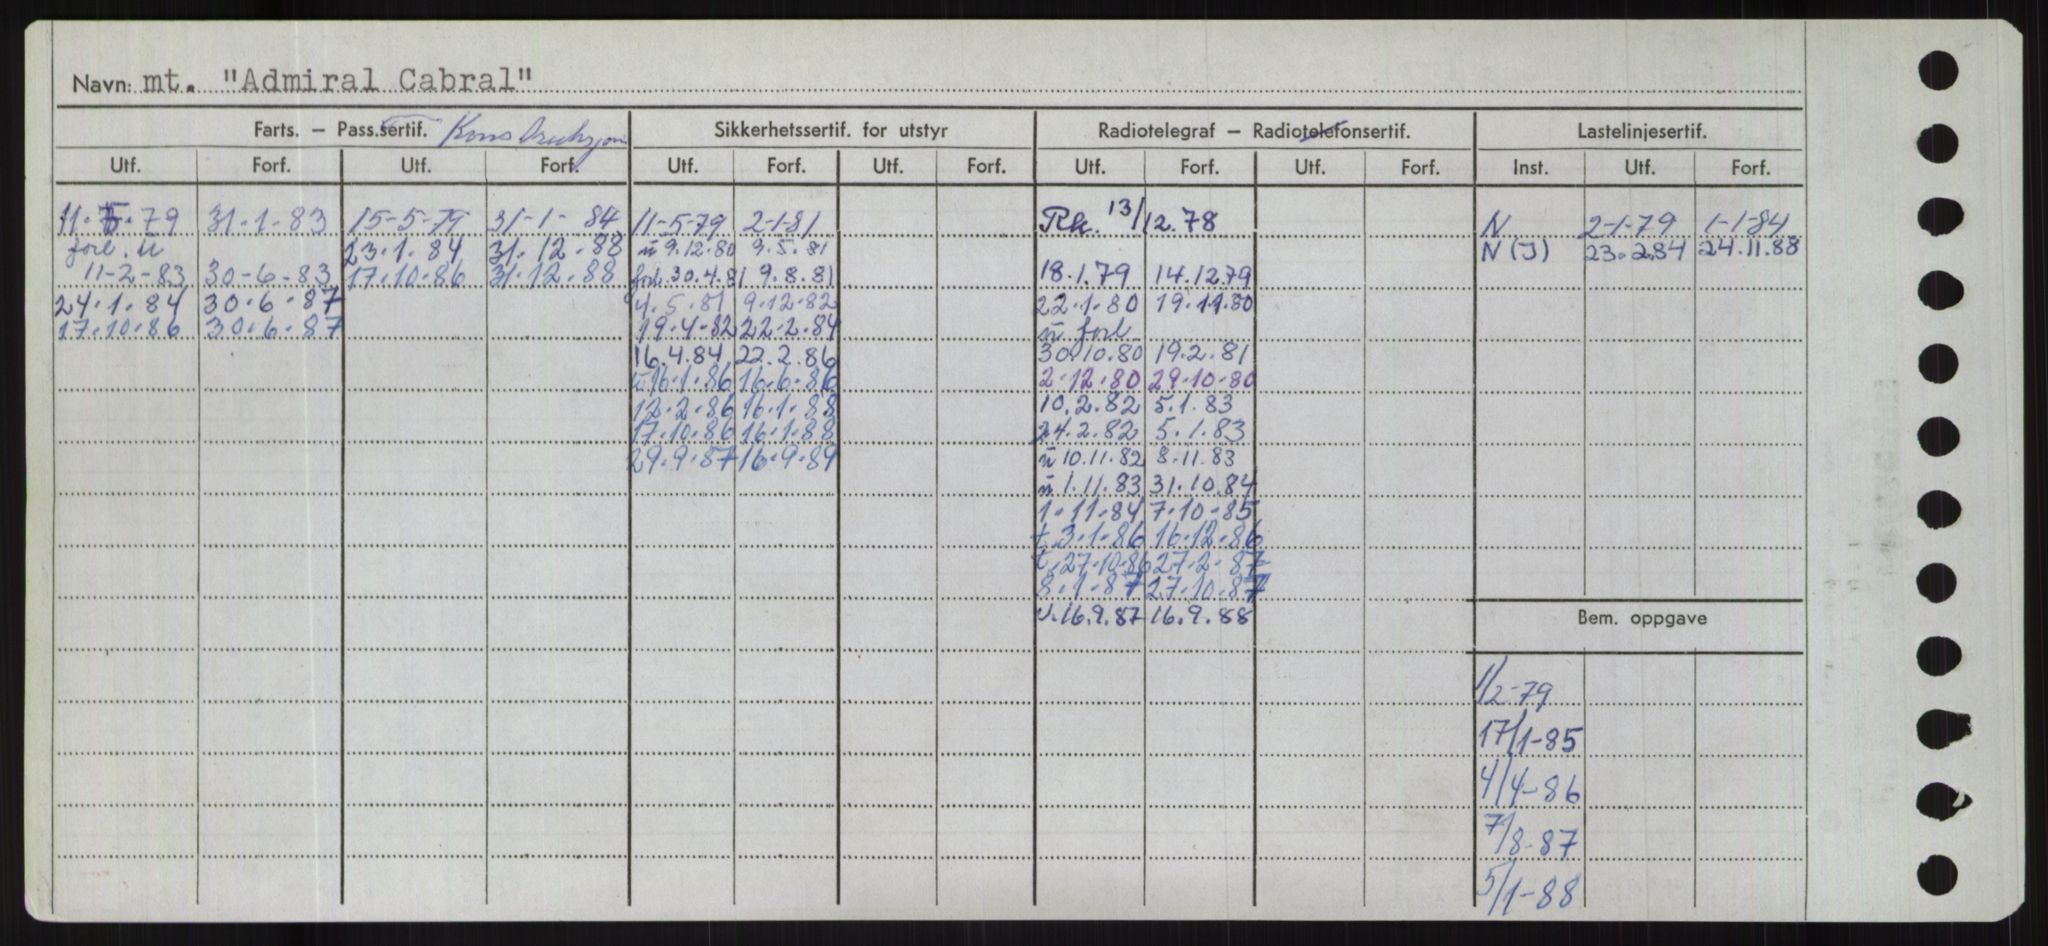 Navn: mt. "Admiral Cabral"
Farts. – Pass.sertif. Konstruksjon Sikkerhetssertif. for utstyr Radiotelegraf – Radiotelefonsertif. Lastelinjesertif.
Utf. Forf. Utf. Forf. Utf. Forf. Utf. Forf. Utf. Forf. Utf. Forf. Inst. Utf. Forf.
11.5.79 31.1.83 15-5-79 31-1-84 11-5-79 2-1-81 Rk. 13/12.78 N 2-1-79 1-1-84
forl. u 23.1.84 31.12.88 u 9.12.80 9.5.81 N (J) 23.2.84 24.11.88
11-2-83 30-6-83 17.10.86 31.12.88 forl. 30.4.81 9.8.81 18.1.79 14.12.79
24.1.84 30.6.87 4.5.81 9.12.82 22.1.80 19.11.80
17.10.86 30.6.87 19.4.82 22.2.84 u forl
16.4.84 22.2.86 30.10.80 19.2.81
u 16.1.86 16.6.86 2.12.80 29.10.80
12.2.86 16.1.88 10.2.82 5.1.83
17.10.86 16.1.88 24.2.82 5.1.83
29.9.87 16.9.89 u 10.11.82 8.11.83
u 1.11.83 31.10.84
1.11.84 7.10.85
t.3.1.86 16.12.86
t.27.10.86 27.2.87
8.1.87 27.10.87
u.16.9.87 16.9.88
Bem. oppgave
1/2-79
17/1-85
4/4-86
7/8-87
5/1-88